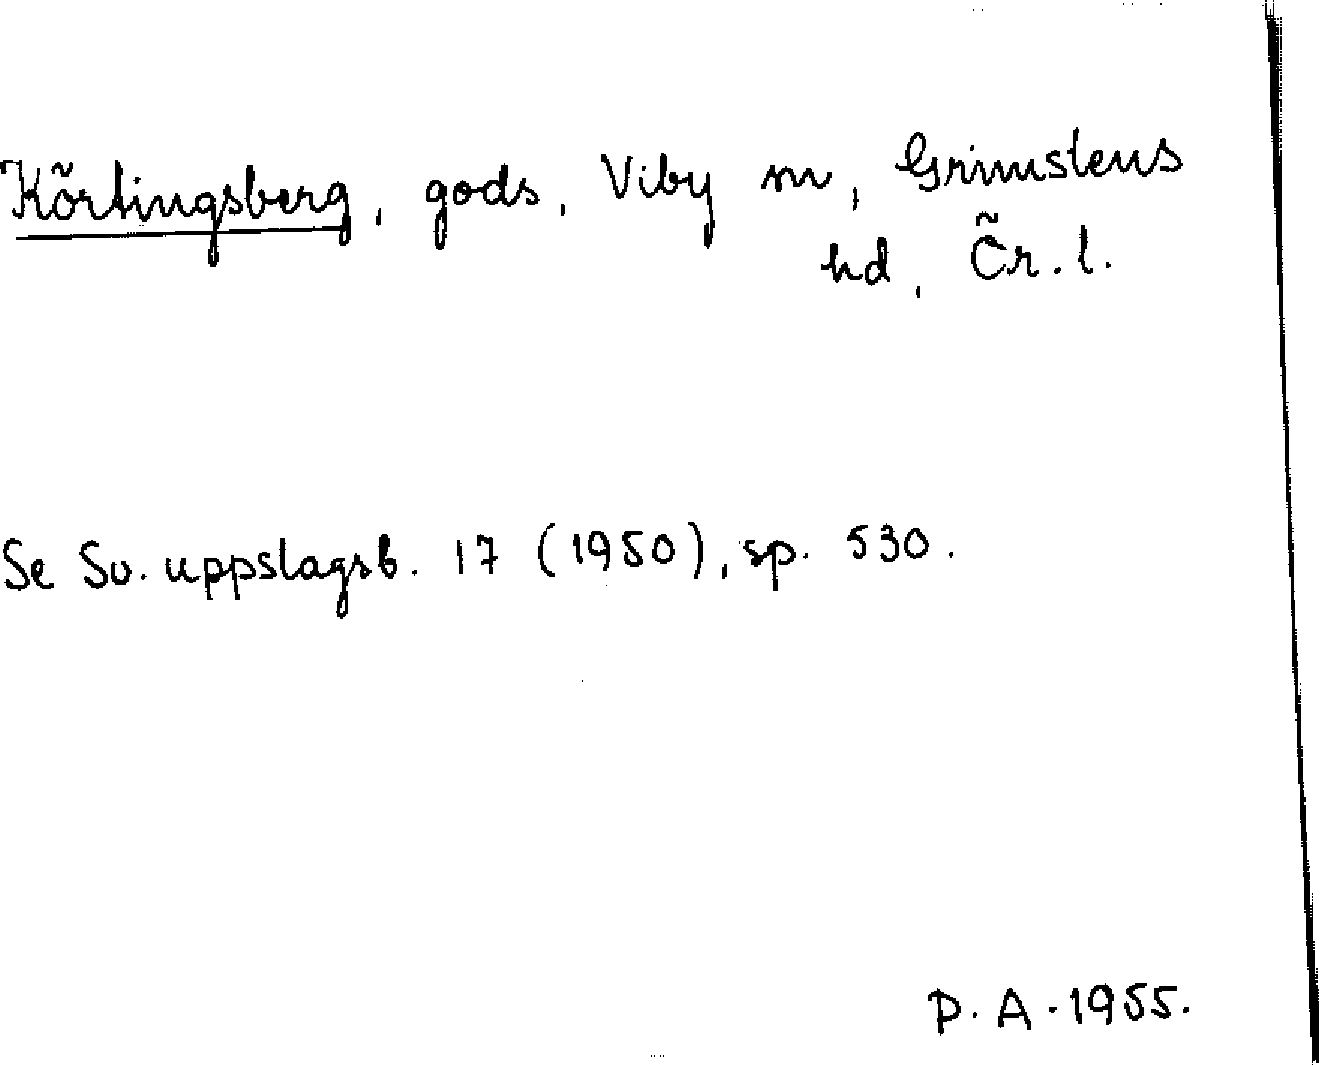 Körtingsberg, gods, Viby sn, Grimstens
hd, Ör. l.
Se Sv. uppslagsb. 17 (1950), sp. 530.
P. A. 1955.